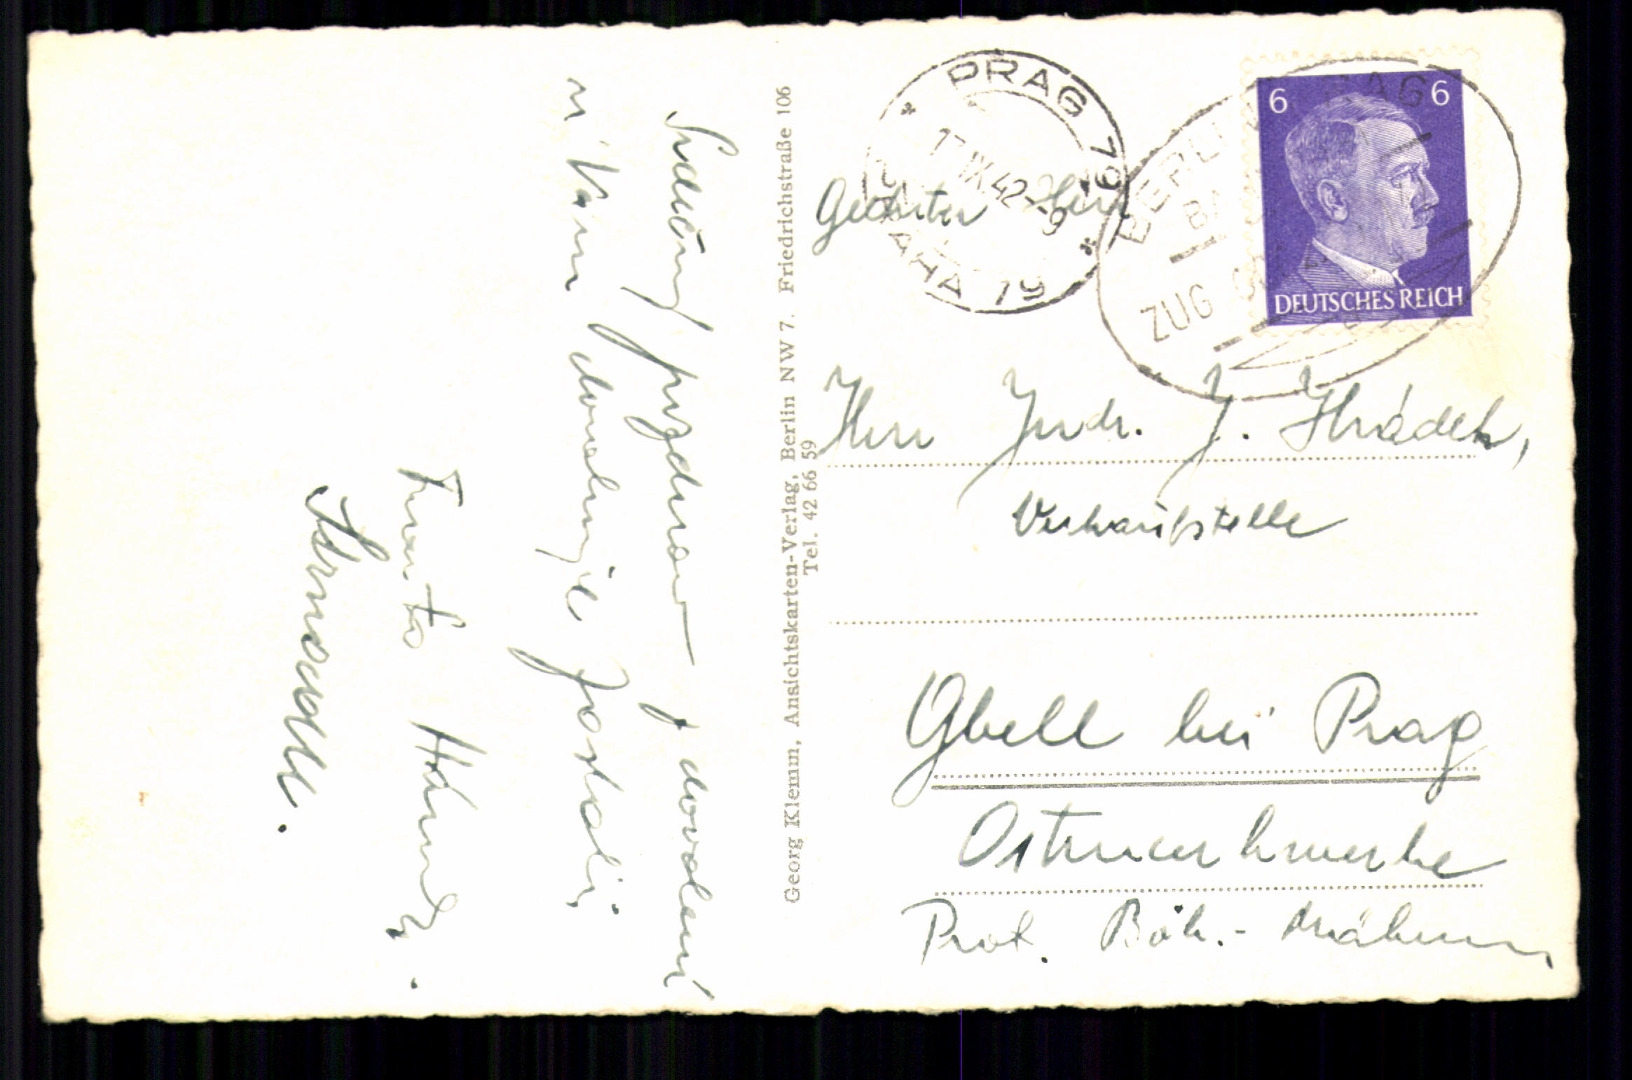 Srdečný pozdrav z dovolené
si Vám dovoluje zaslati
Franta
Georg Klemm, Ansichtskarten-Verlag, Berlin NW 7. Friedrichstraße 106
Tel. 42 66 59
* PRAG 19 *
17.IX.42--9
PRAHA 19
BERLIN PRAG
BAHN
ZUG
6 6
DEUTSCHES REICH
Geehrter Herr
Herr Jndr. J. Hrádek,
Verkaufstelle
Gbell bei Prag
Ostmarkwerke
Prot. Böh.- Mähren